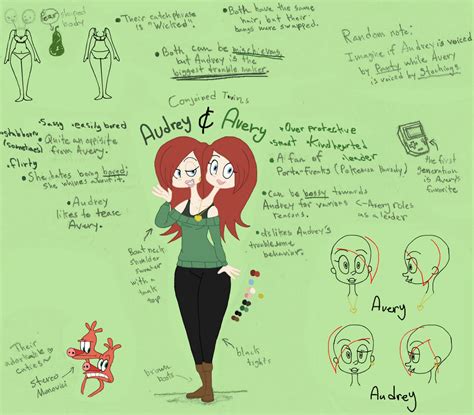 Pear shaped
body
• Their catch phrase
is "Wicked".
• Both have the same
hair, but their
bangs were swapped.
• Both can be mischievous
but Audrey is the
biggest trouble maker.
Random note:
Imagine if Audrey is voiced
by Panty while Avery
is voiced by Stockings.
Conjoined Twins
Audrey & Avery
•Sassy •easily bored
•stubborn
(sometimes)
•Quite an opposite
from Avery.
•flirty
•She hates being bored;
she whines about it.
•Audrey
likes to tease
Avery.
•Over protective
•smart •Kindhearted
•A fan of •leader
Porta-Freaks (Pokemon Parody)
•Can be bossy towards
Audrey for various
reasons.
•Avery roles
as a leader
•dislikes Audrey's
troublesome
behavior.
the first
generation
is Avery's
favorite
Boat neck
shoulder
sweater
with a
tank top
Their
adorable
cuties
Stereo
brown
boots
black
tights
Avery
Audrey